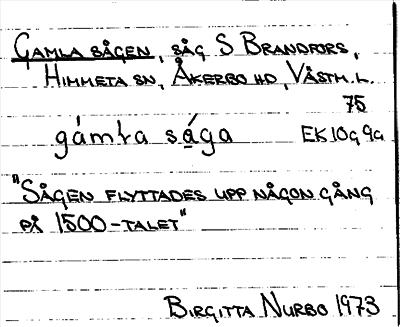 GAMLA SÅGEN, SÅG S BRANDFORS,
HIMMETA SN, ÅKERBO HD, VÄSTM.L.
75
gámḷa sá̱ga EK 10g 9a
"SÅGEN FLYTTADES UPP NÅGON GÅNG
PÅ 1500-TALET"
BIRGITTA NURBO 1973